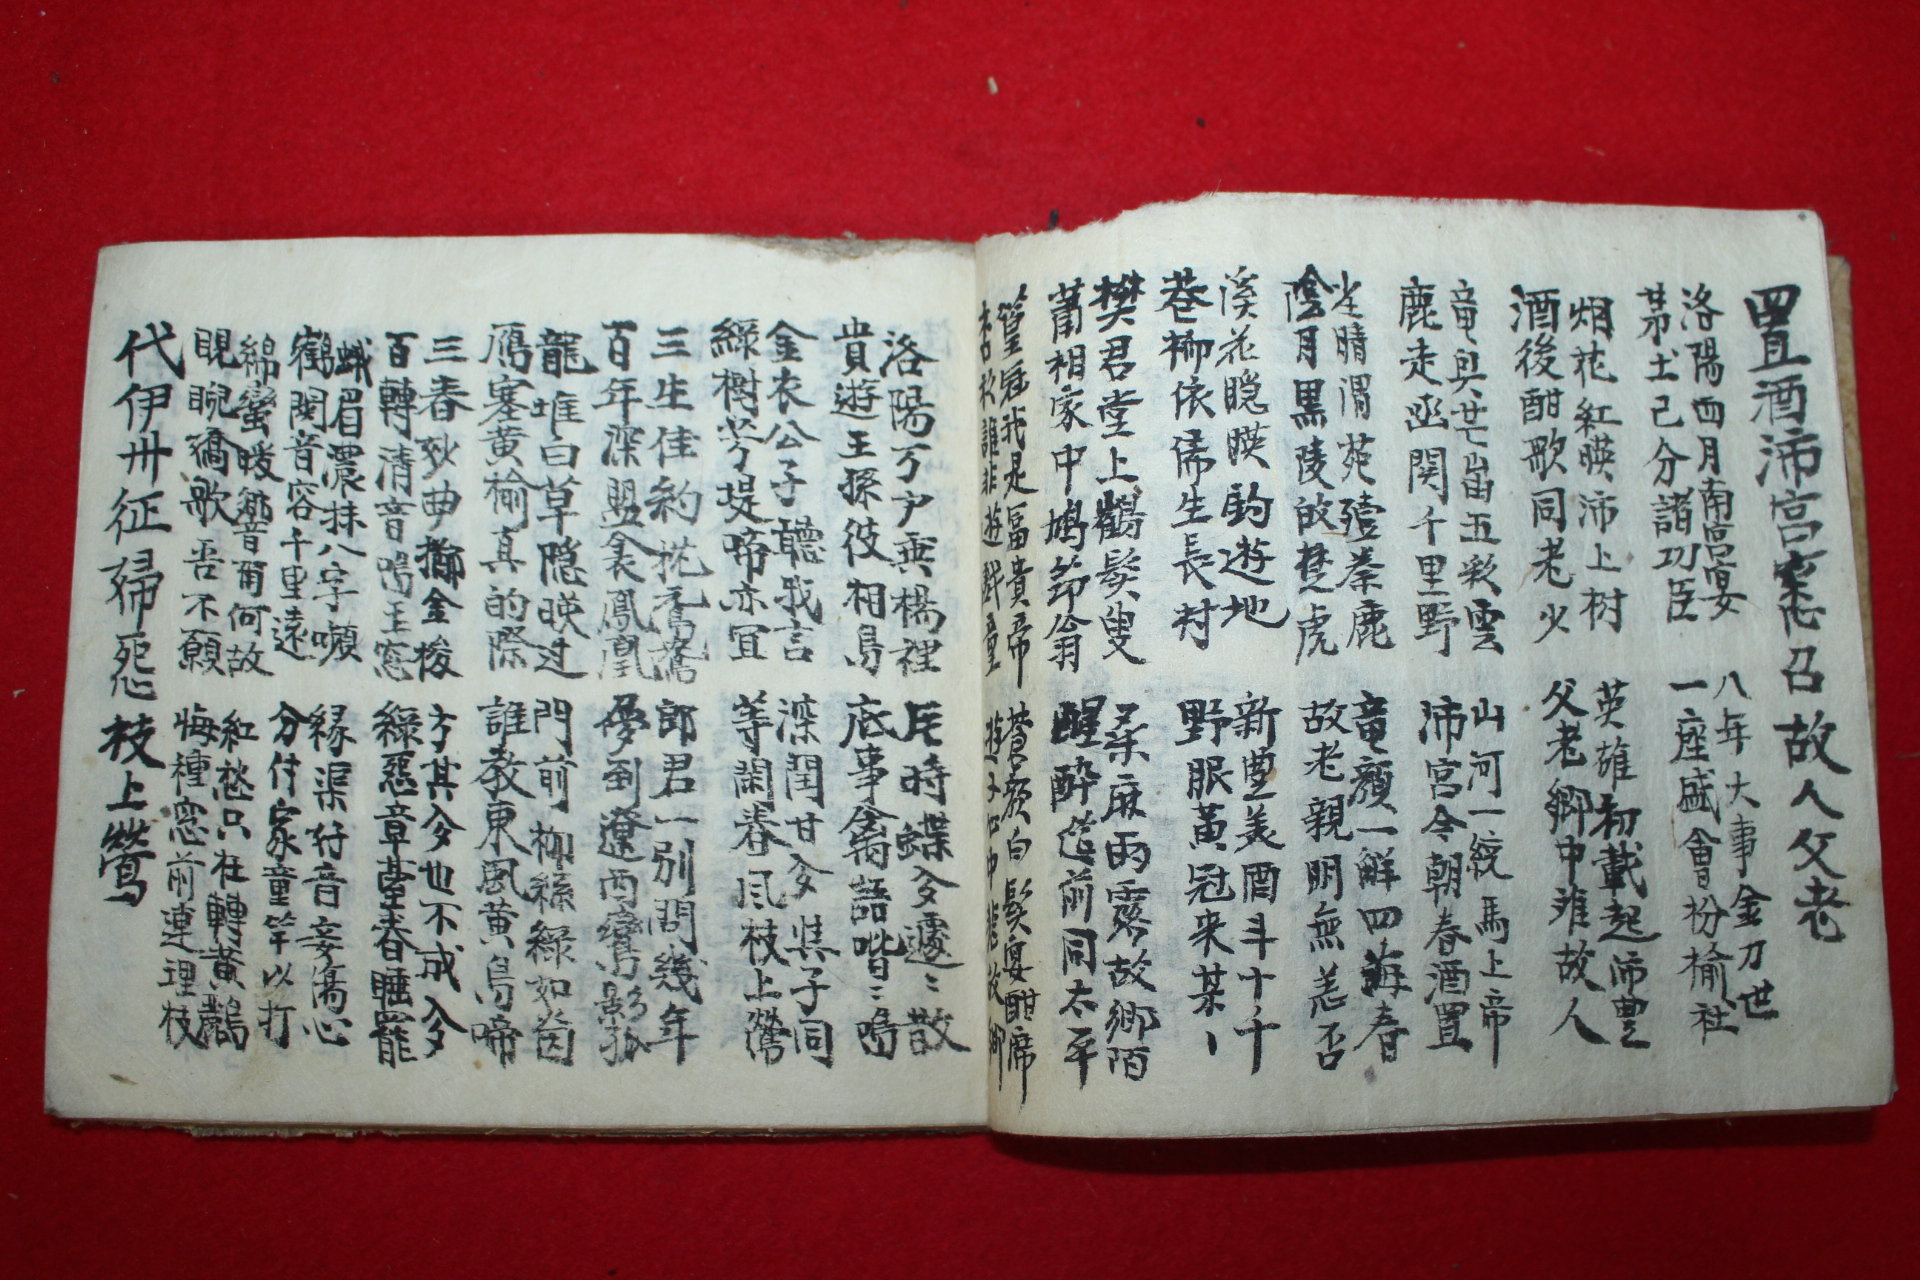 置酒沛宮悉召故人父老
洛陽四月南宮宴 八年大事金刀世
茅土已分諸功臣 一座盛會枌榆社
烟花紅暎沛上树 英雄初載起沛豊
酒後酣歌同老少 父老鄉中难故人
竜與芒崮五彩雲 山河一統馬上帝
鹿走函関千里野 沛宮今朝春酒置
晴渭苑殪秦鹿 竜顔一觧四海春
陰月黒陵故楚虎 故老親朋無恙否
溪花隐暎釣遊地 新豊美酒斗十千
巷柳依俙生長村 野服黃冠来某丶
樊君堂上鶴髮叟 桑麻雨露故鄉陌
蕭相家中鳩節翁 醒醉筵前同太平
篁冠我是富貴帝 蒼顔白髮宴酣席
誰非遊戲童 遊子 故鄉
洛陽万戶垂楊裡 底時蝶夛蘧〻散
貴遊王孫彼相島 底事禽語喈〻鳴
金衣公子聽我言 深閨甘夛與子同
綠樹芳堤啼亦宜 等閑春風枝上鶯
三生佳約枕鴛鴦 郎君一別問幾年
百年深盟衾鳳凰 夛到遼西鸞影孤
龍堆白草隐暎过 門前柳絲綠如茵
鴈塞黄榆真的際 誰教東風黄鳥啼
三春妙曲擲金梭 方其夛也不成夛
百轉清音鳴玉窓 綠惡章臺春睡罷
蛾眉濃抹八字嚬 緣渠好音妾傷心
鶴関音容千里遠 分付家童竿以打
綿蠻暖響甫何故 紅愁只在轉黃鸝
睍睆矞歌吾不願 悔種窓前連理枝
代伊州征婦怨枝上鶯